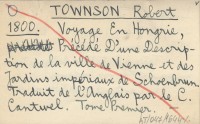 TOWNSON Robert
1800. Voyage En Hongrie,
Précédé D'une Descrip-
tion de la ville de Vienne et des
Jardins impériaux de Schoenbrun
Traduit de L'Anglais par le C.
Cantwel. Tome Premier.